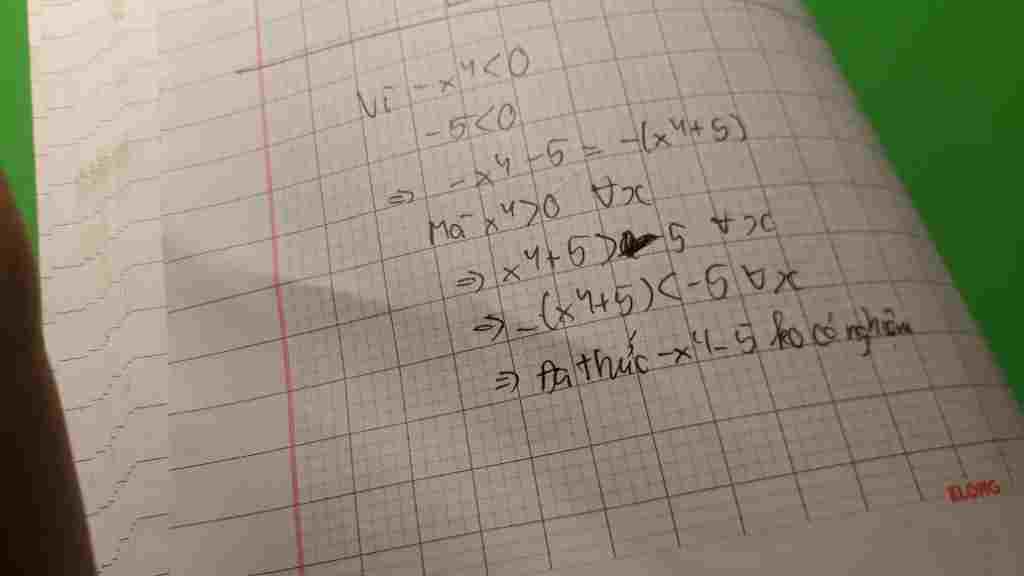 Vì -x⁴<0
-5<0
⇒ -x⁴-5 = -(x⁴+5)
Mà x⁴>0 ∀x
⇒ x⁴+5> 5 ∀x
⇒ -(x⁴+5)<-5 ∀x
⇒ Đa thức -x⁴-5 ko có nghiệm
KLONG